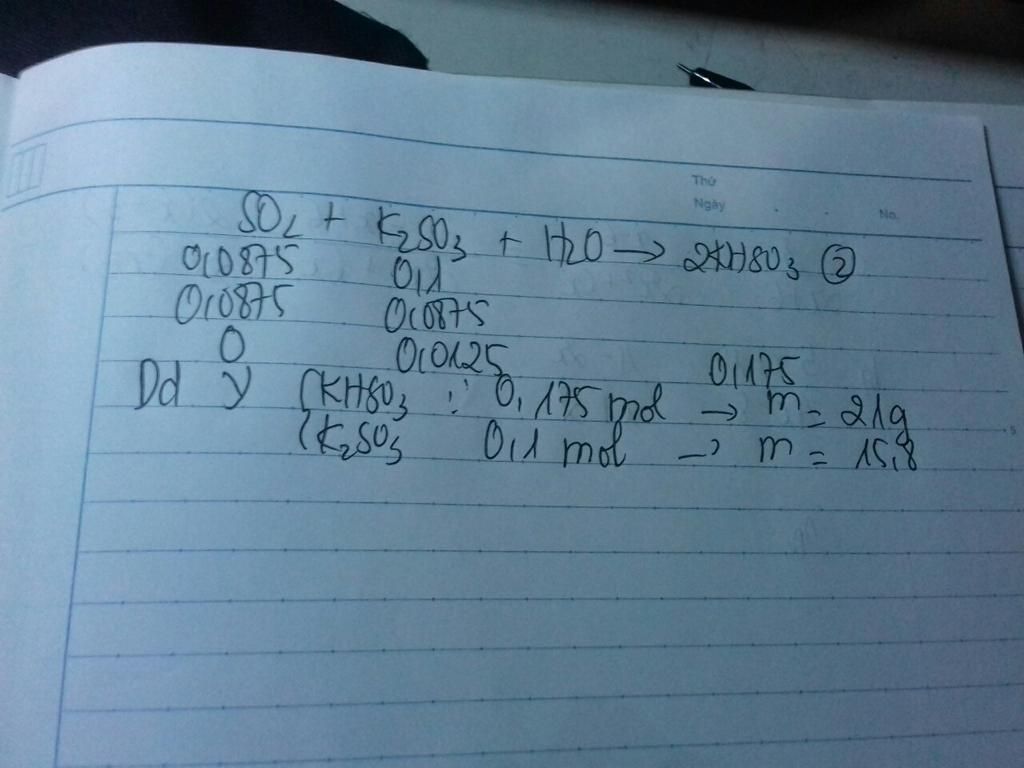 Thứ
Ngày . . No.
SO2 + K2SO3 + H2O → 2KHSO3 ②
0,0875 0,1
0,0875 0,0875
0 0,0125 0,175
Dd Y (KHSO3 : 0,175 mol → m = 21g
(K2SO3 0,1 mol → m = 15,8